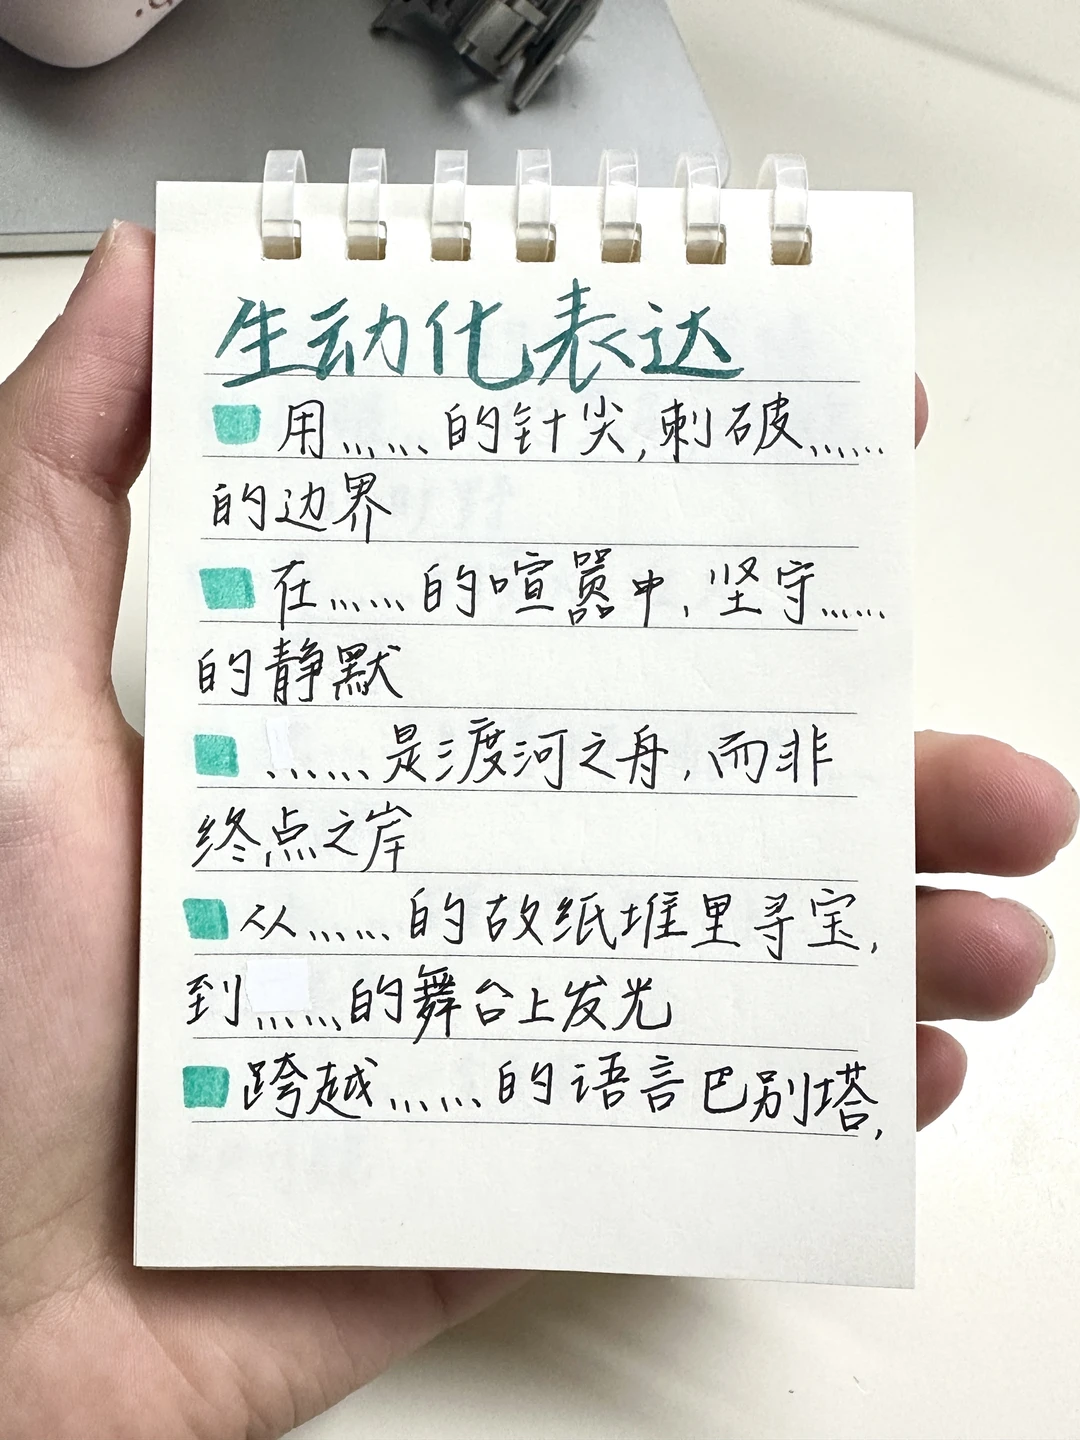 生动化表达
用……的针尖,刺破……
的边界
在……的喧嚣中,坚守……
的静默
……是渡河之舟,而非
终点之岸
从……的故纸堆里寻宝,
到……的舞台上发光
跨越……的语言巴别塔,